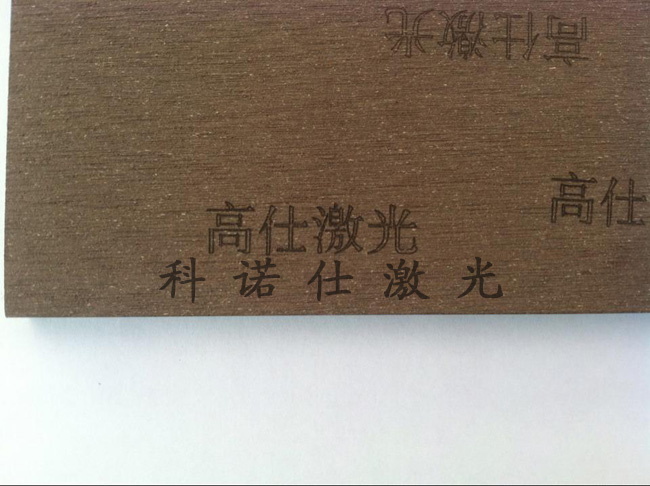 高仕激光
高仕
高仕激光
科诺仕激光